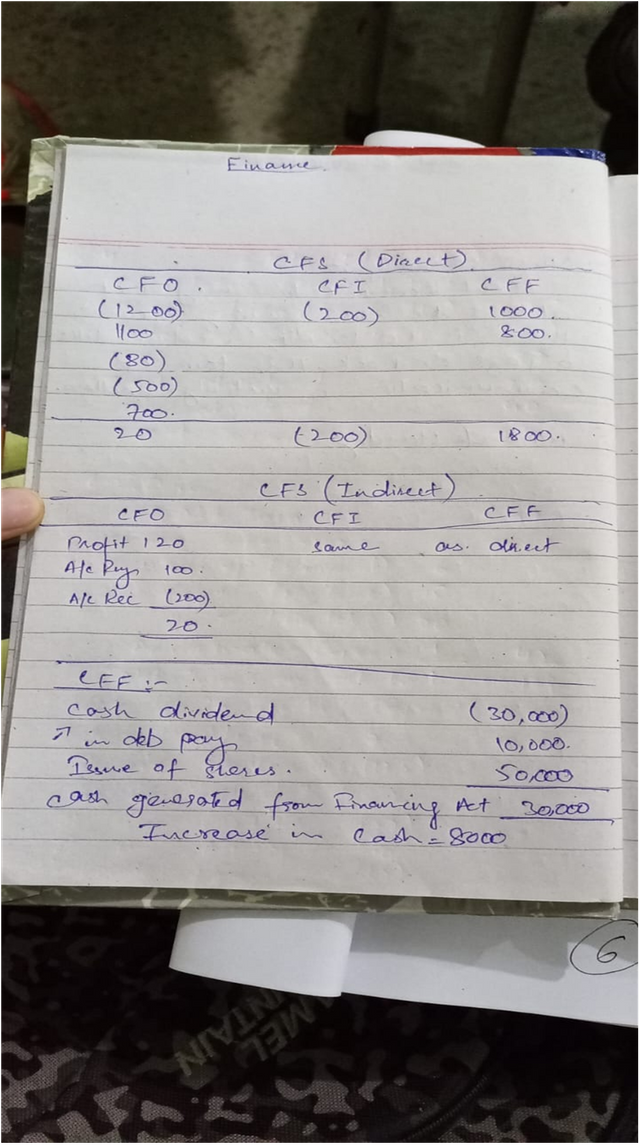 Finance.
CFS (Direct)
CFO. CFI CFF
(1200) (200) 1000.
1100 800.
(80)
(500)
700.
20 (-200) 1800.
CFS (Indirect)
CFO CFI CFF
Profit 120 same as. direct
A/c Pay 100.
A/c Rec (200)
20.
CFF :-
Cash dividend (30,000)
↗ in deb pay 10,000.
Issue of shares. 50,000
Cash generated from Financing Act 30,000
Increase in Cash = 8000
6
CAMEL
MOUNTAIN